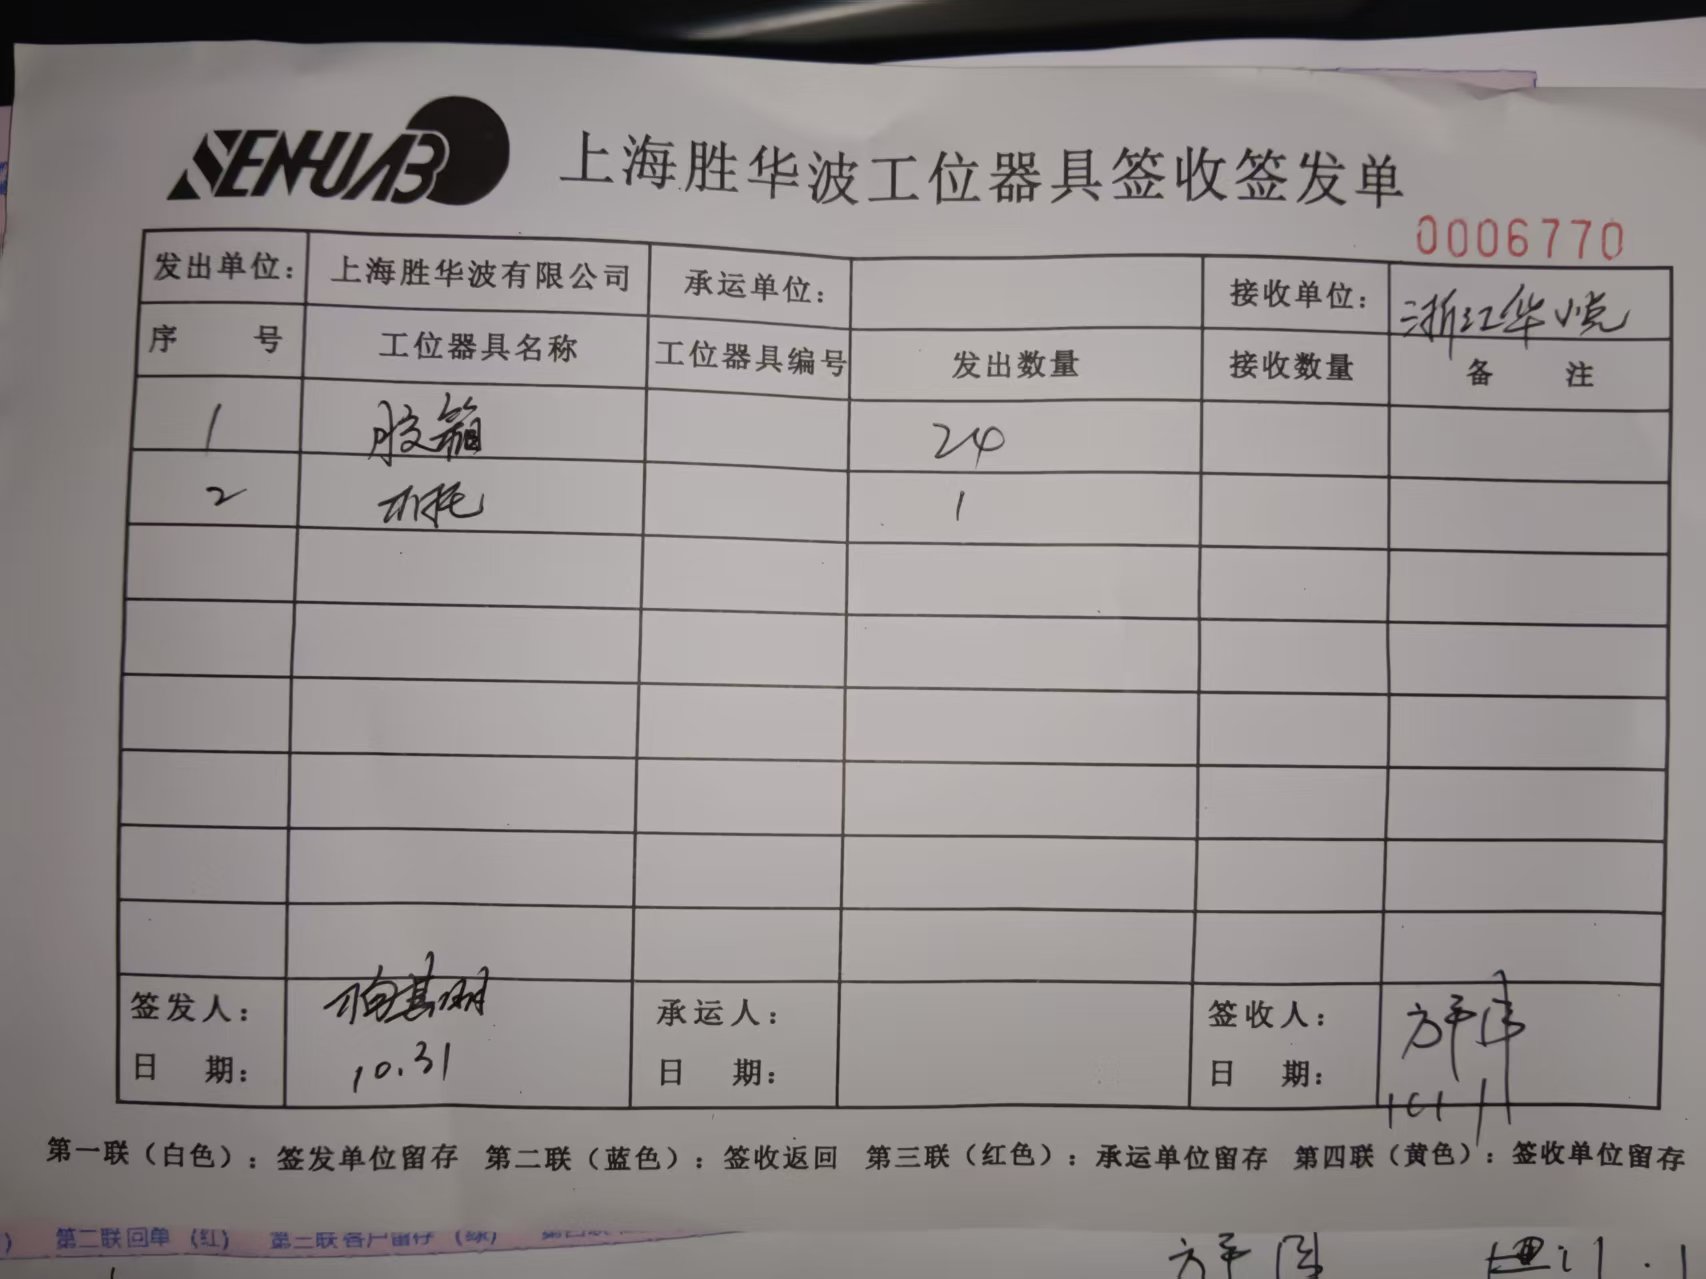 SENHUAB
上海胜华波工位器具签收签发单
0006770
发出单位： 上海胜华波有限公司 承运单位： 接收单位： 浙江华悦
序 号 工位器具名称 工位器具编号 发出数量 接收数量 备 注
1 胶箱 24
2 木托 1
签发人： 承运人： 签收人：
日 期： 10.31 日 期： 日 期：
第一联（白色）：签发单位留存 第二联（蓝色）：签收返回 第三联（红色）：承运单位留存 第四联（黄色）：签收单位留存
第二联回单（红） 第三联客户留存（绿）